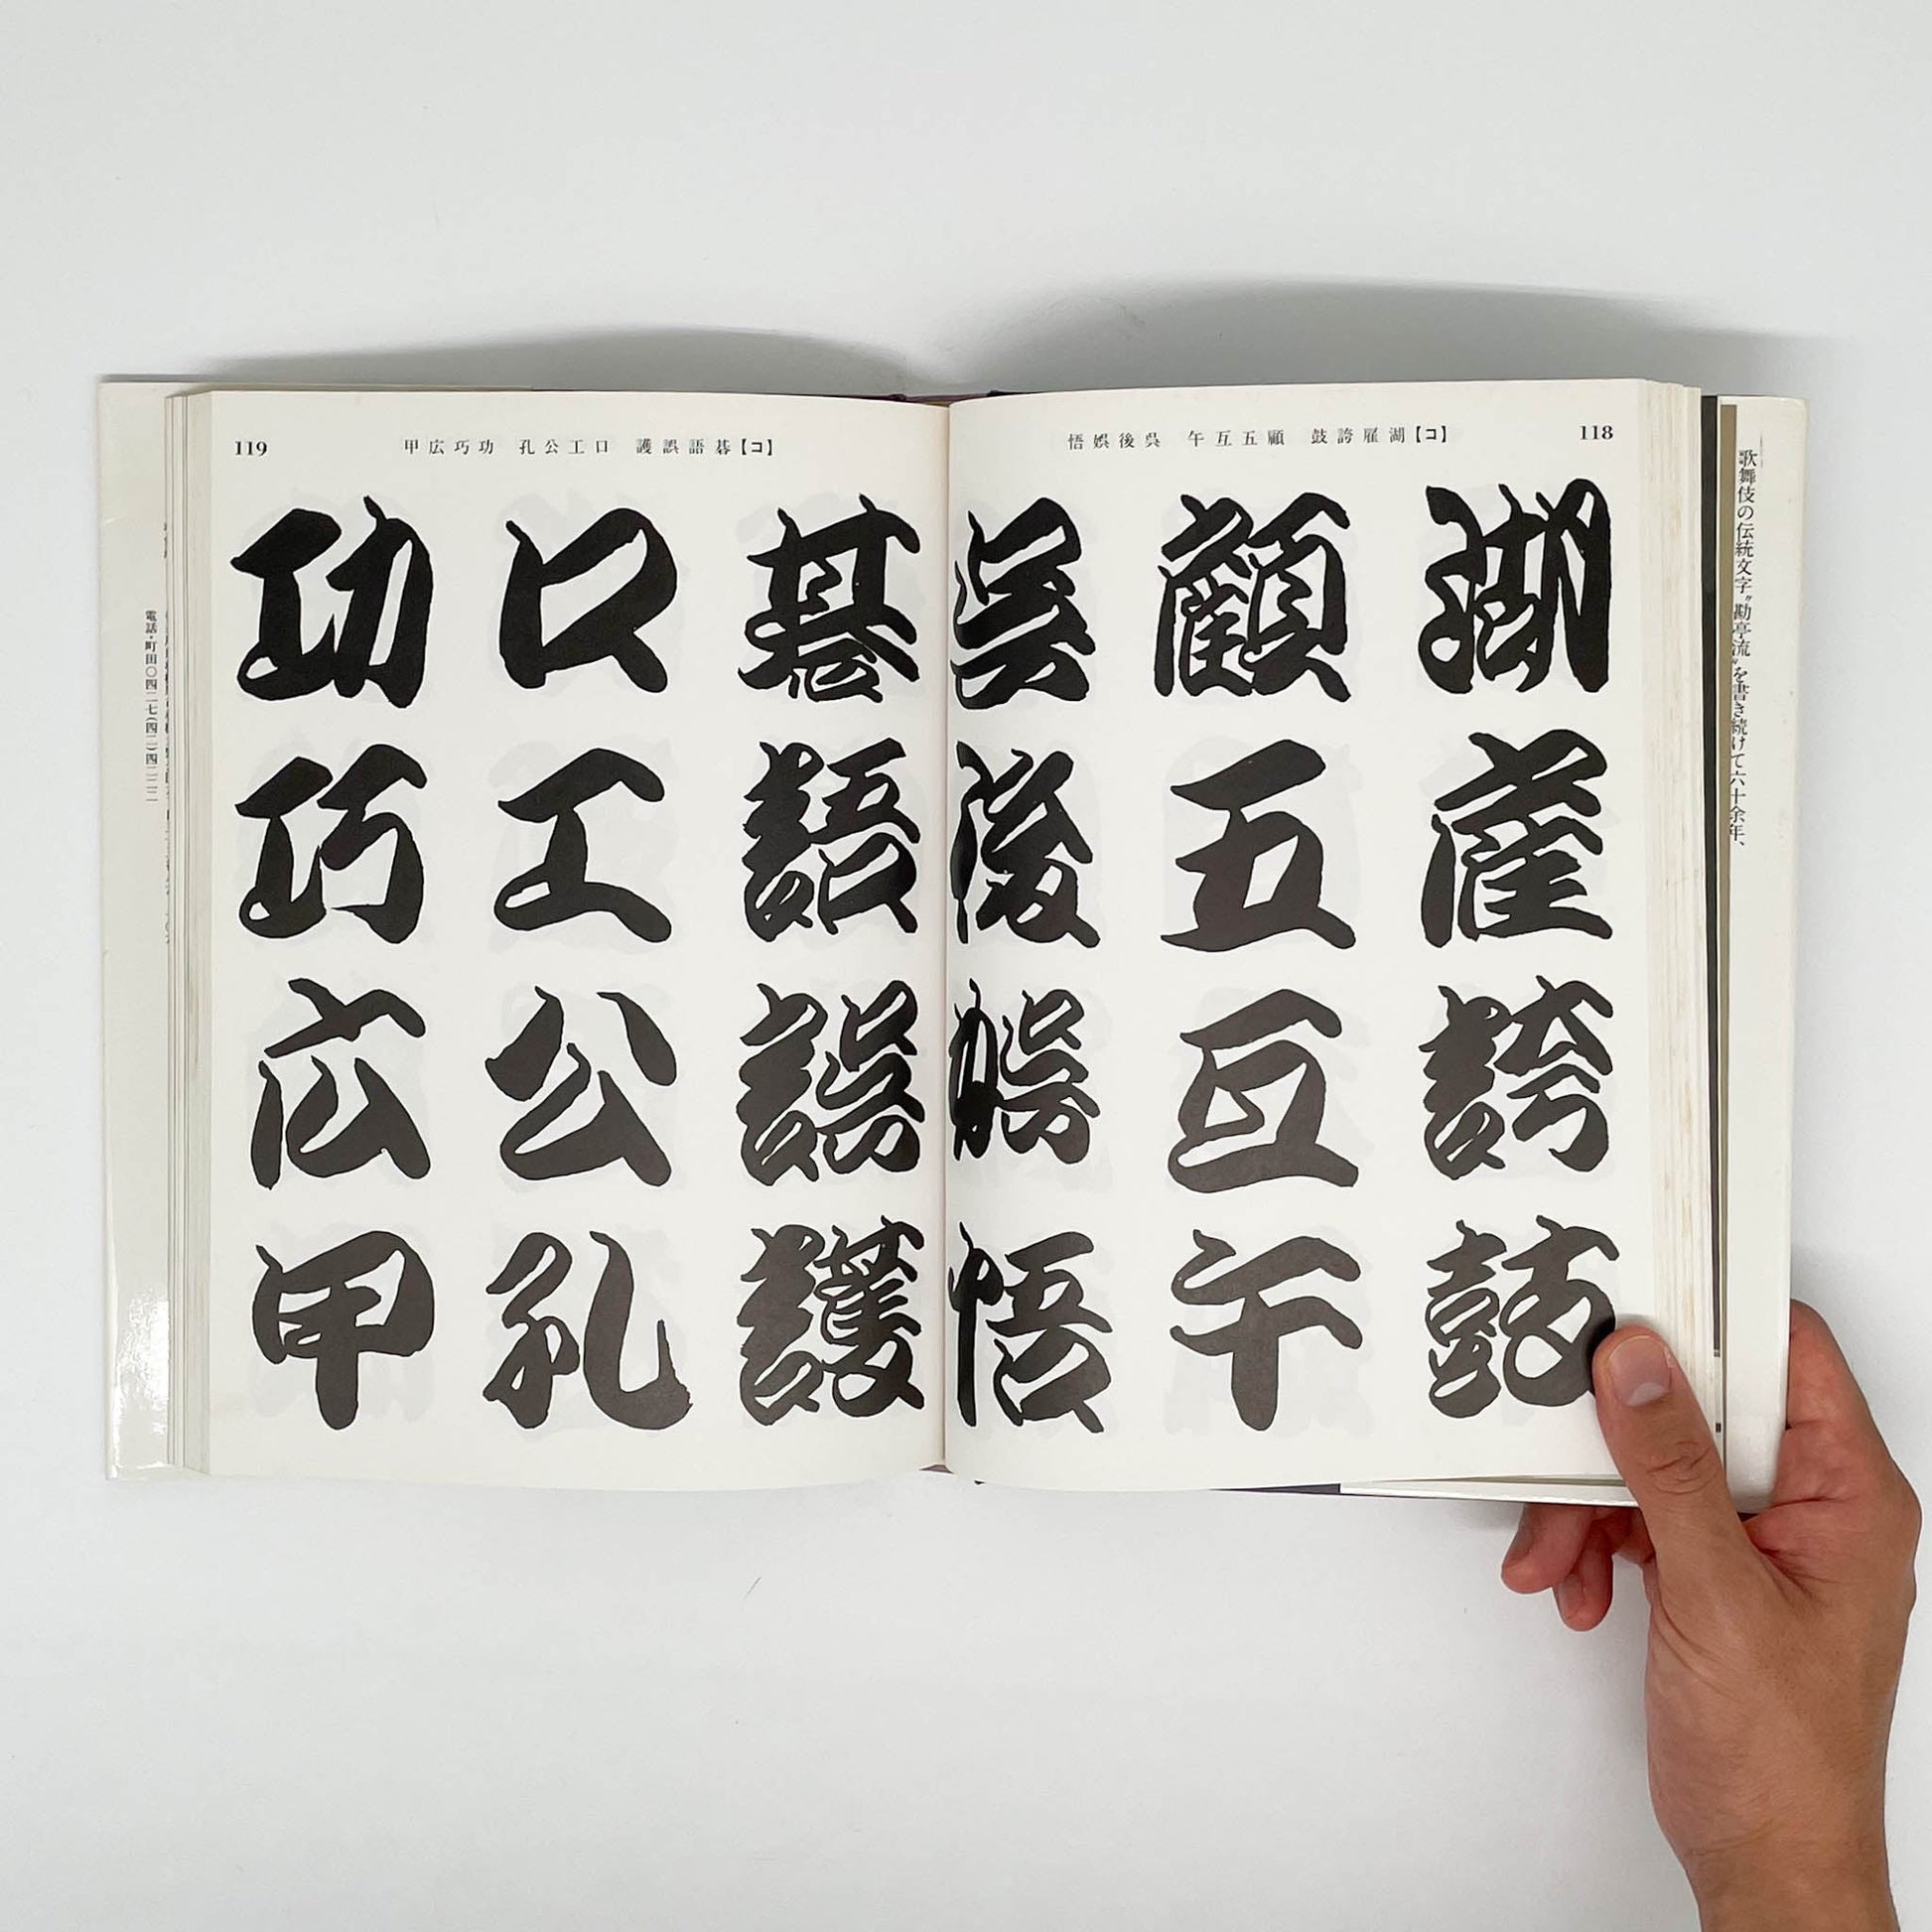 歌舞伎の伝統文字〝勘亭流〟を書き続けて六十余年、
118
【コ】湖雇誇鼓 顧五互午 呉後娯悟
湖雇誇鼓
顧五互午
呉後娯悟
119
【コ】碁語誤護 口工公孔 功巧広甲
碁語誤護
口工公孔
功巧広甲
電話・町田〇四二七(四二)四二二二